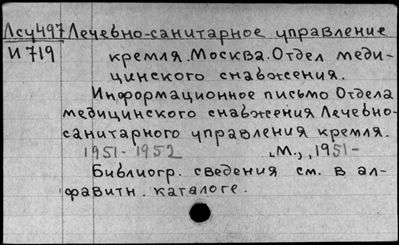 Лсу497 Лечебно-санитарное управление
И719 кремля. Москва. Отдел меди-
цинского снабжения.
Информационное письмо Отдела
медицинского снабжения Лечебно-
санитарного управления кремля.
1951-1952 М., 1951-
Библиогр. сведения см. в ал-
фавитн. каталоге.